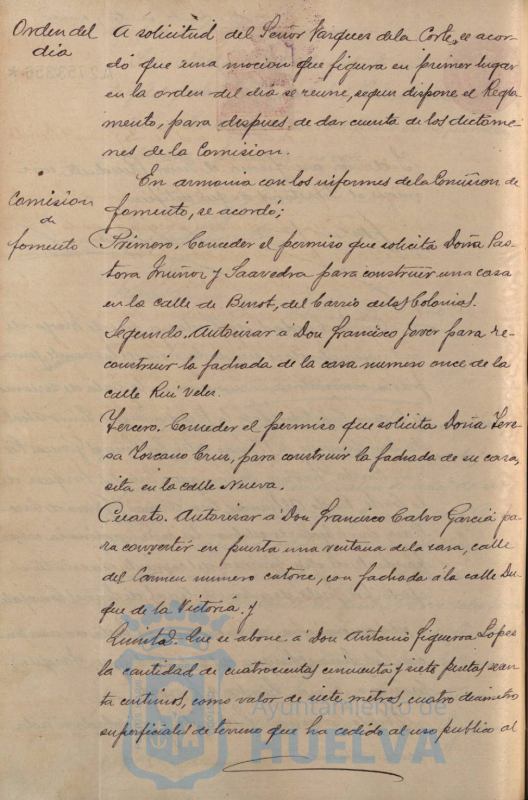 Orden del
día
A solicitud del Señor Vazques de la Corte, se acor
dó que una mocion que figura en primer lugar
en la orden del dia se reune, segun dispone el Regla
mento, para despues de dar cuenta de los dictame
nes de la Comision.
Comision
de
fomento
En armonia con los informes de la Comision de
fomento, se acordó:
Primero. Conceder el permiso que solicita Doña Pas
tora Muñoz y Saavedra para construir una casa
en la calle de Benot, del barrio de las Colonias.
Segundo. Autorizar á Don Francisco Jover para re-
construir la fachada de la casa numero once de la
calle Rui Velez.
Tercero. Conceder el permiso que solicita Doña Tere
sa Toscano Cruz, para construir la fachada de su casa,
sita en la calle Nueva.
Cuarto. Autorizar á Don Francisco Calvo Garcia pa
ra convertir en puerta una ventana de la casa, calle
del Carmen numero catorce, con fachada á la calle Du
que de la Victoria. y
Quinto. Que se abone á Don Antonio Figueroa Lopes
la cantidad de cuatrocientas cincuenta y siete pesetas
ta centimos, como valor de siete metros, cuatro decimetros
superficiales de terreno que ha cedido al uso publico al
Ayuntamiento de
HUELVA